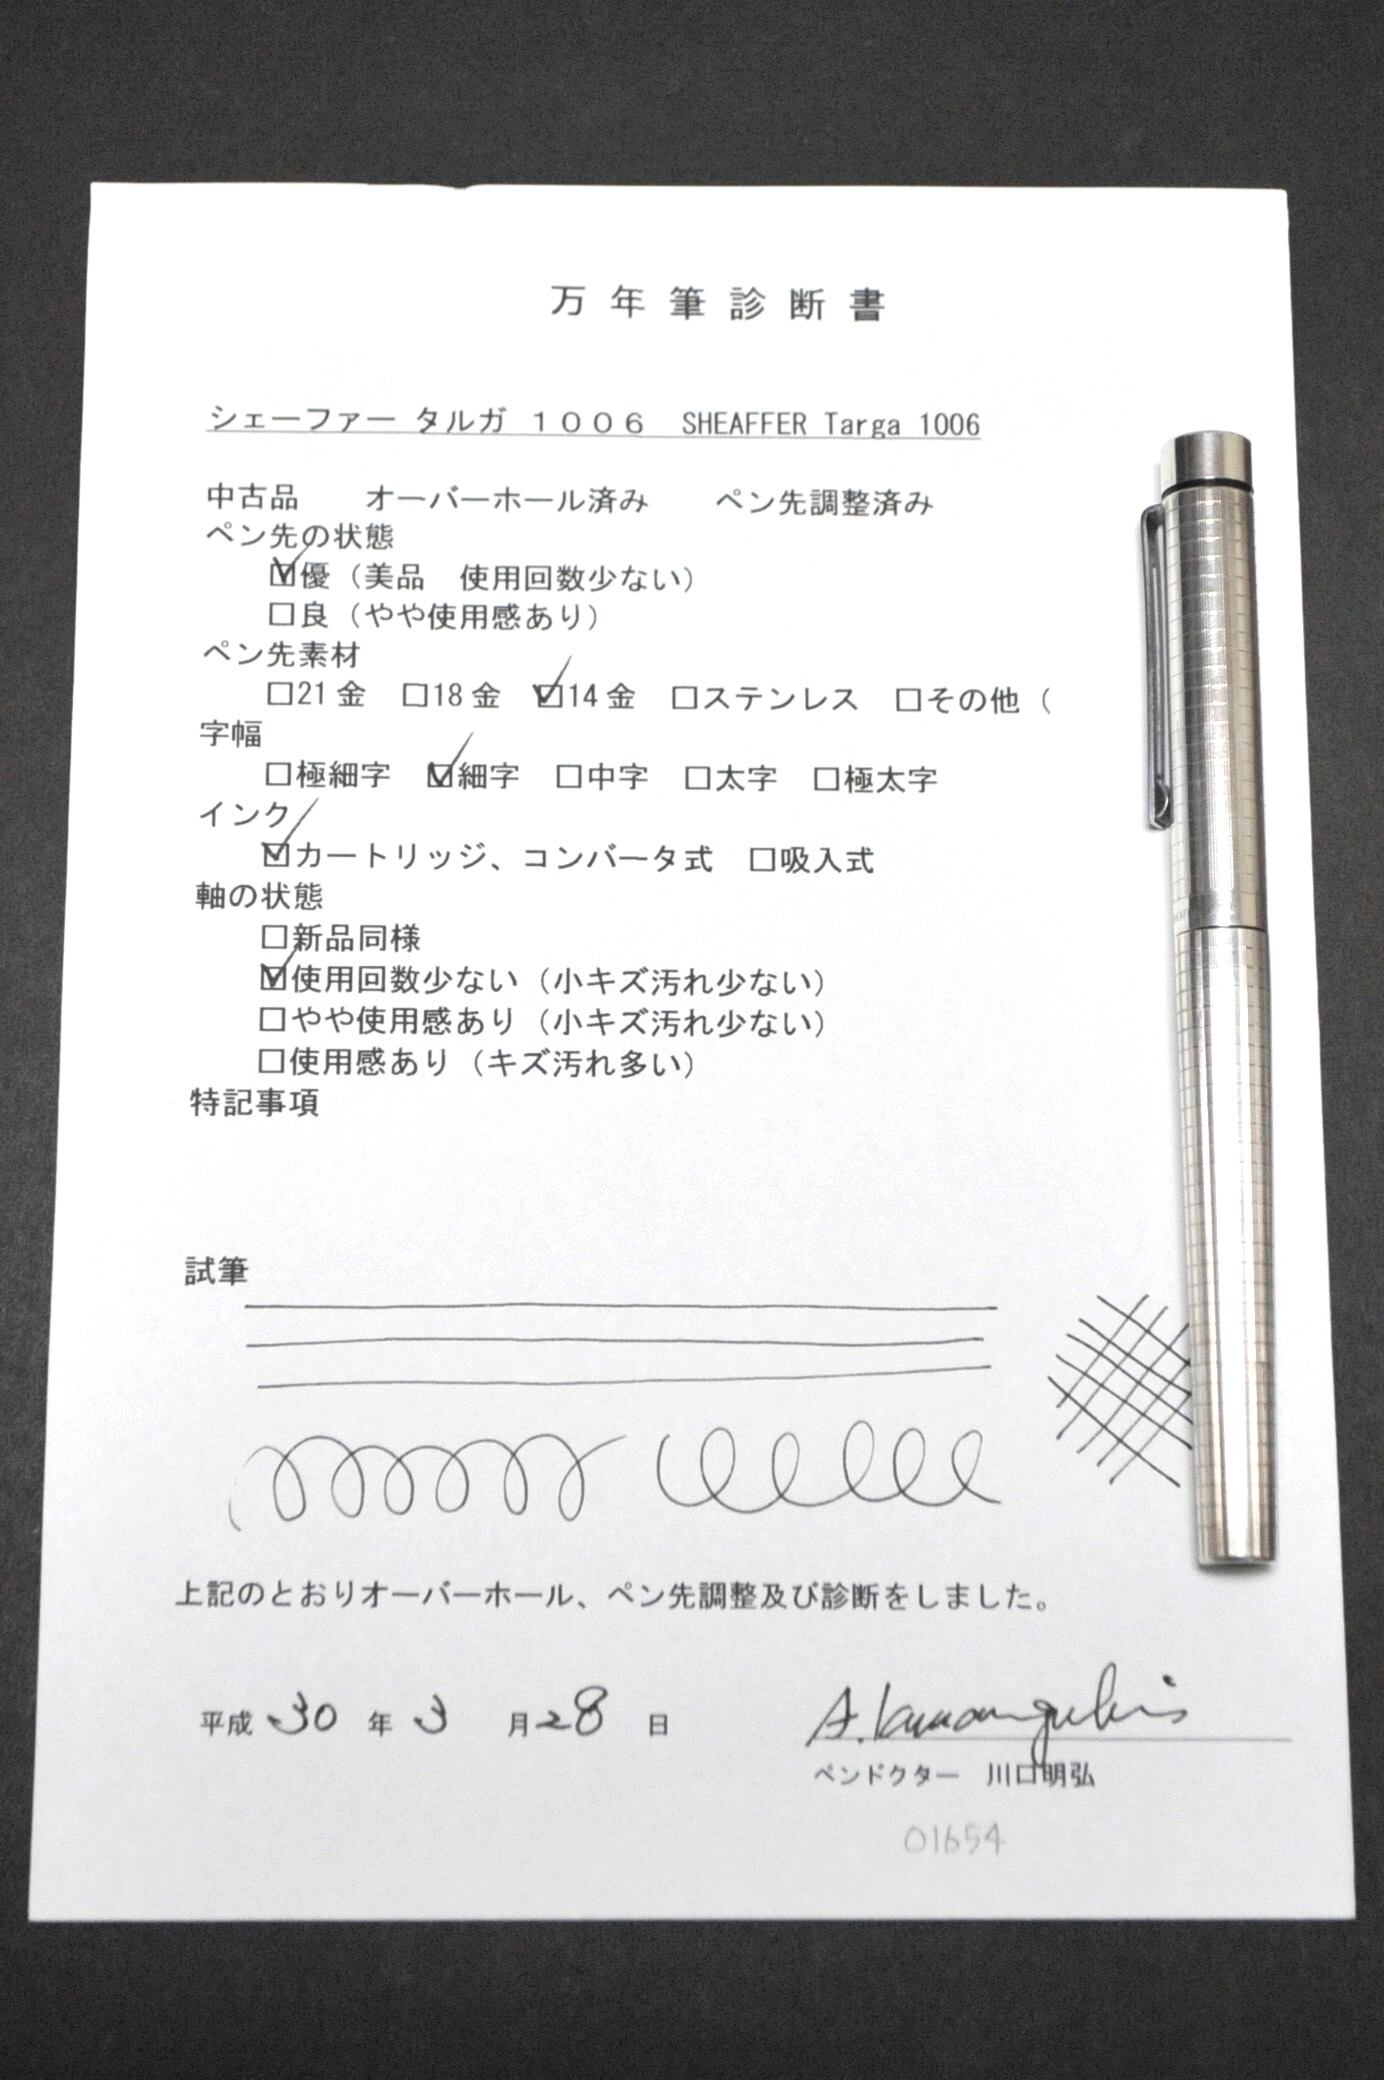 万年筆診断書
シェーファー タルガ １００６　SHEAFFER Targa 1006
中古品　　オーバーホール済み　　ペン先調整済み
ペン先の状態
☑優（美品　使用回数少ない）
☐良（やや使用感あり）
ペン先素材
☐21金　☐18金　☑14金　☐ステンレス　☐その他（
字幅
☐極細字　☑細字　☐中字　☐太字　☐極太字
インク
☑カートリッジ、コンバータ式　☐吸入式
軸の状態
☐新品同様
☑使用回数少ない（小キズ汚れ少ない）
☐やや使用感あり（小キズ汚れ少ない）
☐使用感あり（キズ汚れ多い）
特記事項
試筆
上記のとおりオーバーホール、ペン先調整及び診断をしました。
平成 30 年 3 月 28 日
ペンドクター　川口明弘
01654